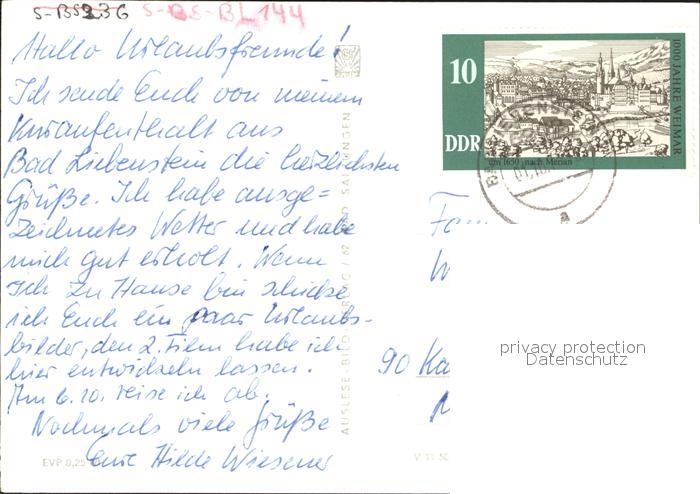 S-BS236
S-BS-BL144
Hallo Urlaubsfreunde!
Ich sende Euch von meinem
Kuraufenthalt aus
Bad Liebenstein die herzlichsten
Grüße. Ich habe ausge=
zeichnetes Wetter und habe
mich gut erholt. Wenn
ich zu Hause bin schicke
ich Euch ein paar Urlaubs-
bilder, den 2. Film habe ich
hier entwickeln lassen.
Am 6. 10. reise ich ab.
Nochmals viele Grüße
Eure Hilde Wiesener
EVP 0,25
AUSLESE-BILD
SALZUNGEN
V 11 50
10
DDR
1000 JAHRE WEIMAR
um 1650 nach Merian
Fam
W
90 Ka
privacy protection
Datenschutz